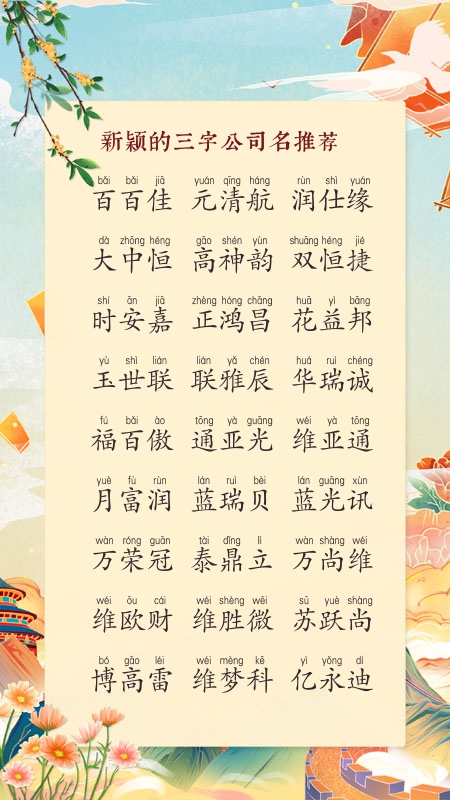 新颖的三字公司名推荐
bǎi bǎi jiā yuán qīng háng rùn shì yuán
百百佳 元清航 润仕缘
dà zhōng héng gāo shén yùn shuāng héng jié
大中恒 高神韵 双恒捷
shí ān jiā zhèng hóng chāng huā yì bāng
时安嘉 正鸿昌 花益邦
yù shì lián lián yǎ chén huá ruì chéng
玉世联 联雅辰 华瑞诚
fú bǎi ào tōng yà guāng wéi yà tōng
福百傲 通亚光 维亚通
yuè fù rùn lán ruì bèi lán guāng xùn
月富润 蓝瑞贝 蓝光讯
wàn róng guān tài dǐng lì wàn shàng wéi
万荣冠 泰鼎立 万尚维
wéi ōu cái wéi shèng wēi sū yuè shàng
维欧财 维胜微 苏跃尚
bó gāo léi wéi mèng kē yì yǒng dí
博高雷 维梦科 亿永迪